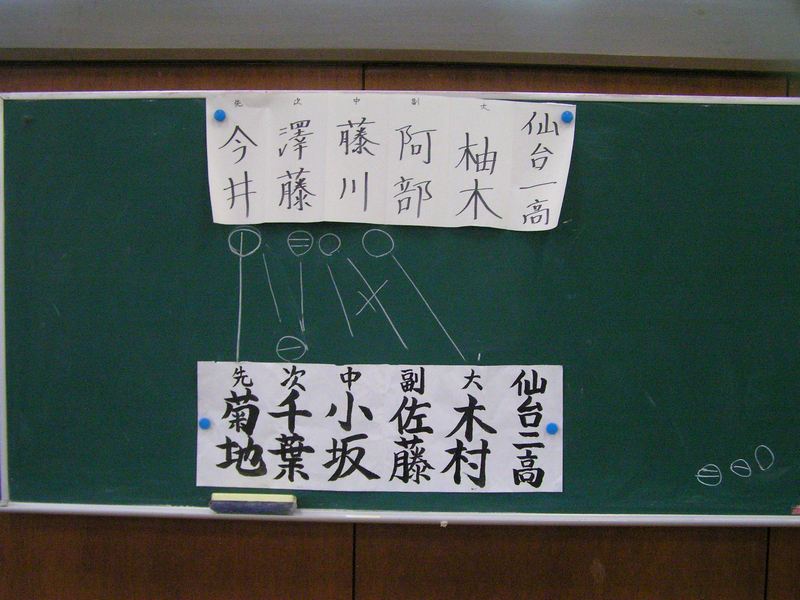 仙台一高
大 柚木
副 阿部
中 藤川
次 澤藤
先 今井
仙台二高
大 木村
副 佐藤
中 小坂
次 千葉
先 菊地